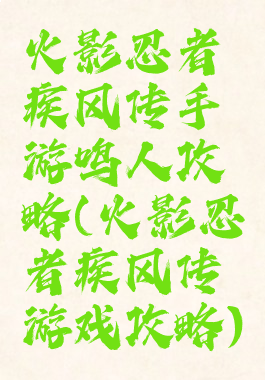 火影忍者
疾风传手
游鸣人攻
略(火影忍
者疾风传
游戏攻略)